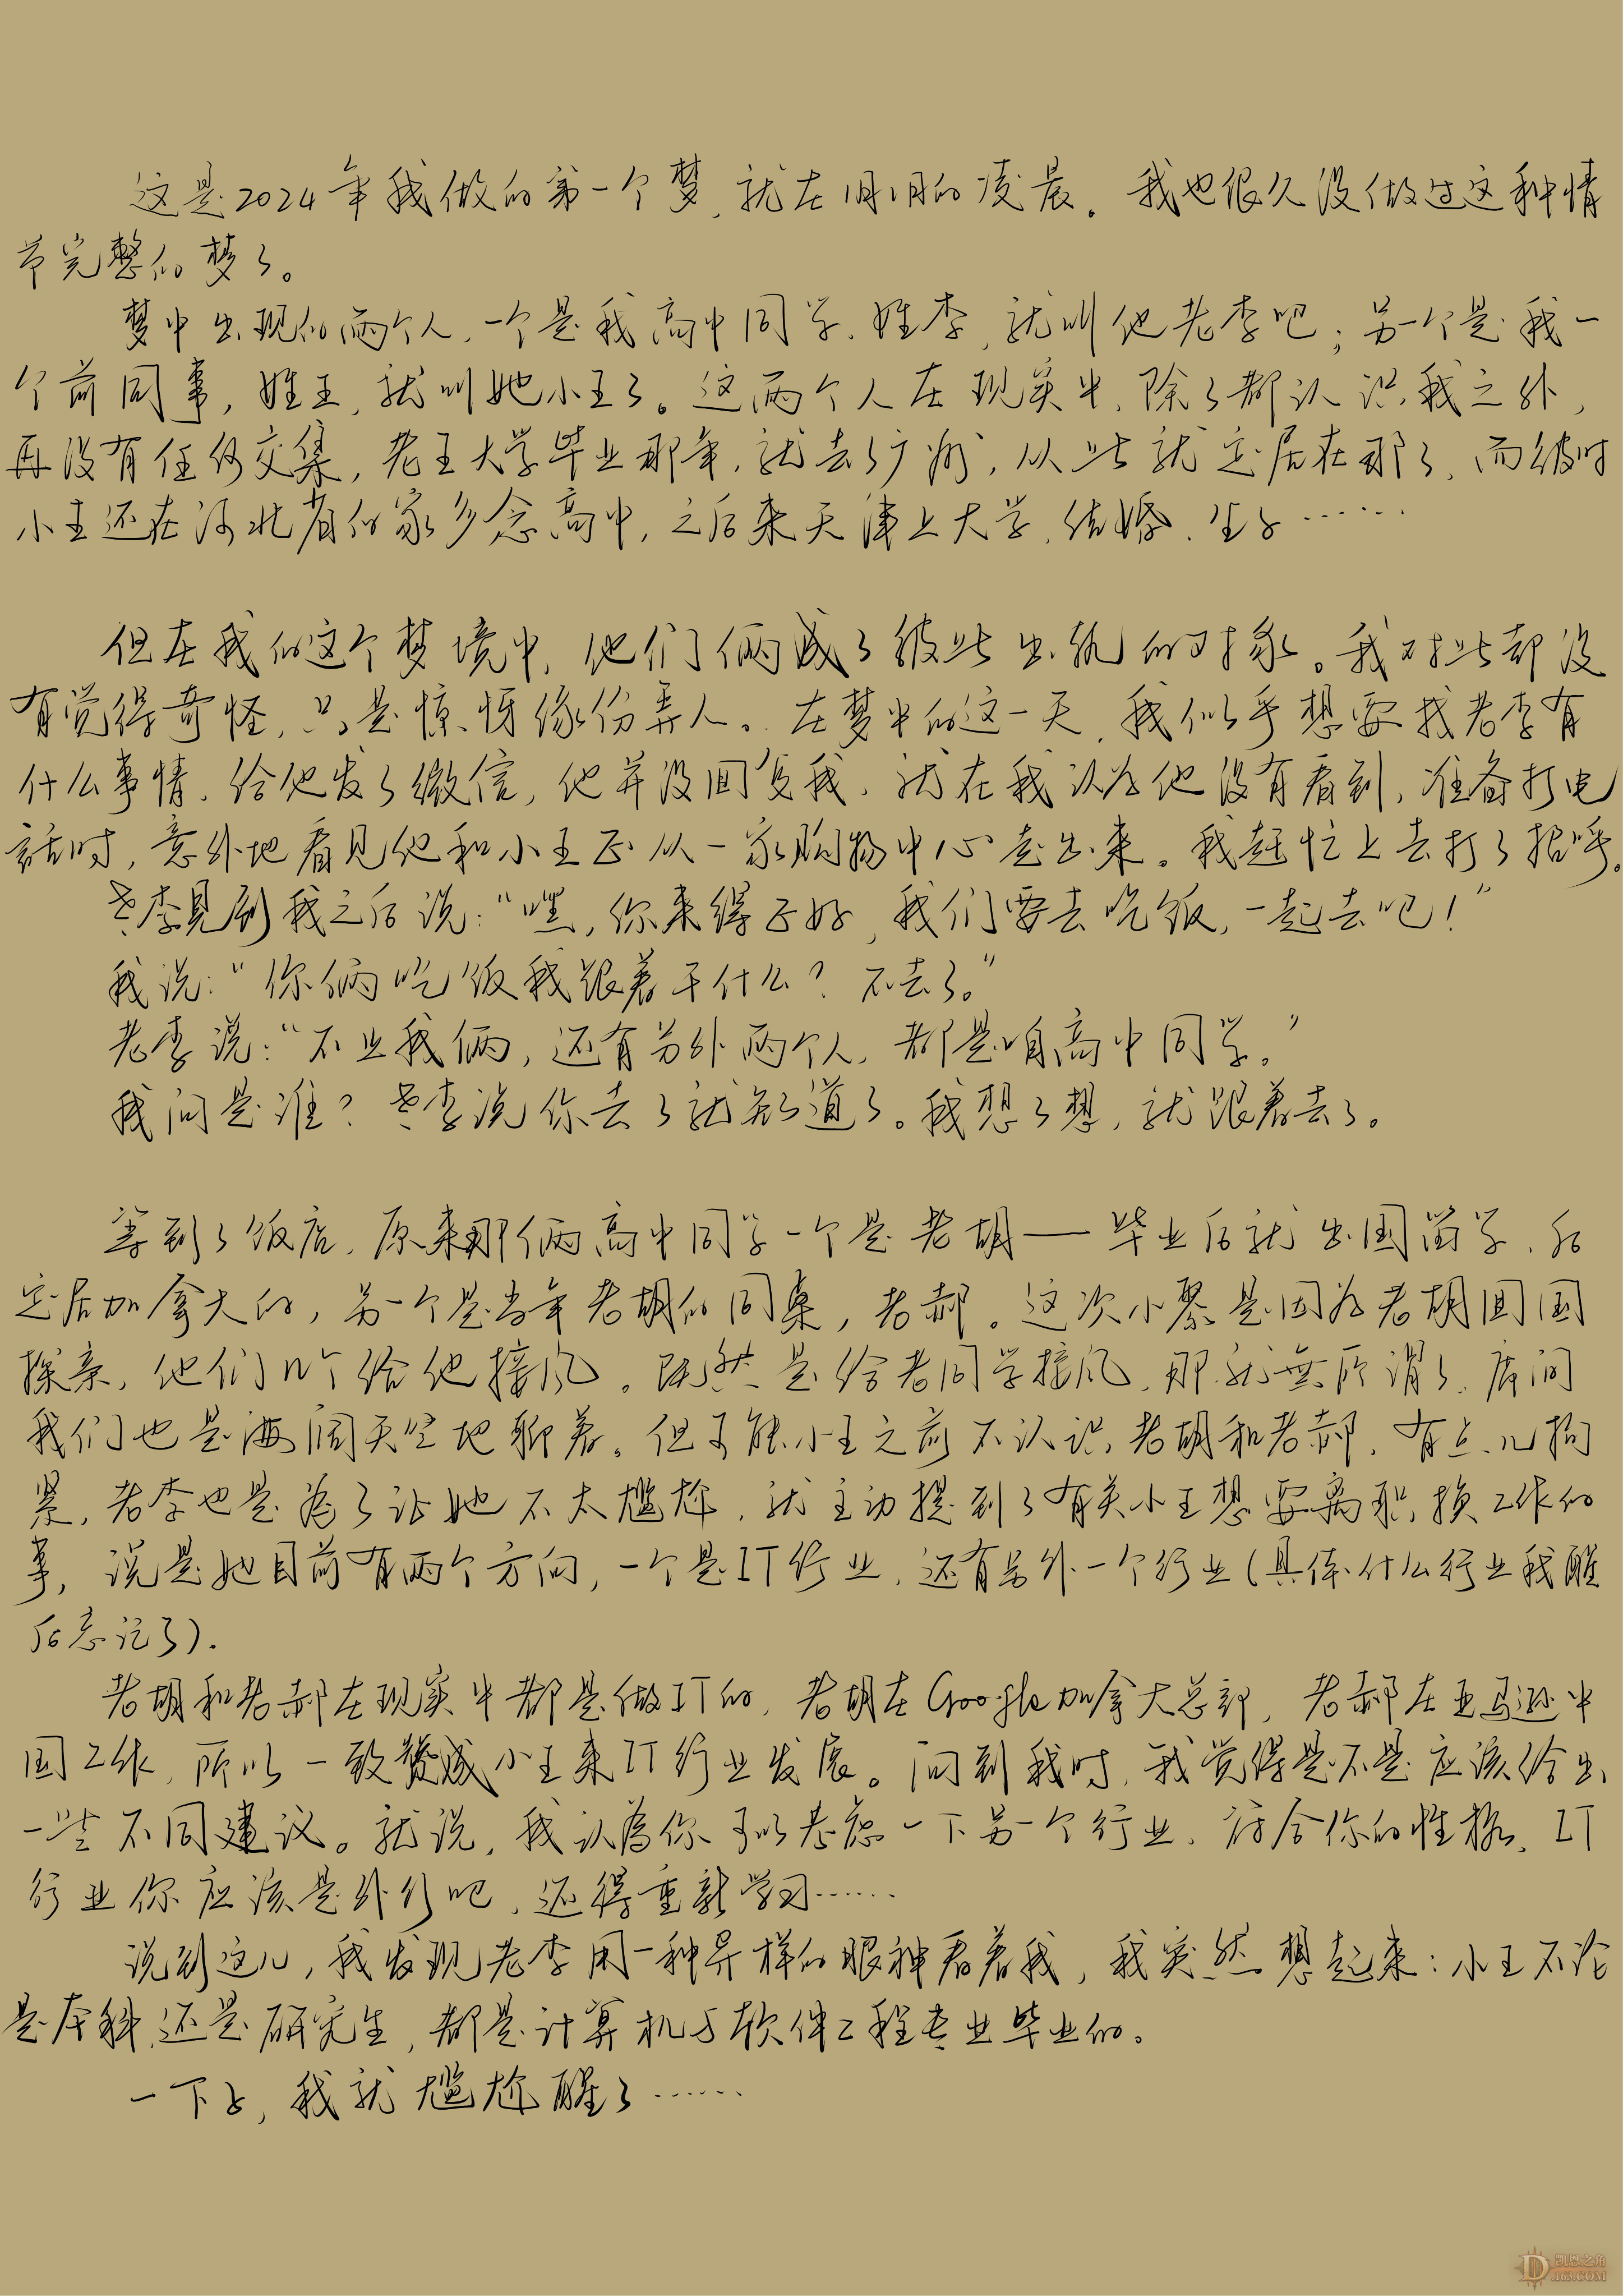 这是2024年我做的第一个梦，就在1月1日的凌晨。我也很久没做过这种情
节完整的梦了。
梦中出现的两个人，一个是我高中同学，姓李，就叫他老李吧；另一个是我一
个前同事，姓王，就叫她小王了。这两个人在现实中，除了都认识我之外，
再没有任何交集，老王大学毕业那年，就去了广州，从此就定居在那了，而彼时
小王还在河北省的家乡念高中，之后来天津上大学，结婚，生子……
但在我的这个梦境中，他们俩成了彼此出轨的对象。我对此却没
有觉得奇怪，只是惊讶缘份弄人。在梦中的这一天，我似乎想要找老李有
什么事情，给他发了微信，他并没回复我，就在我认为他没有看到，准备打电
話时，意外地看见他和小王正从一家购物中心走出来。我赶忙上去打了招呼。
老李見到我之后说：“嘿，你来得正好，我们要去吃饭，一起去吧！”
我说：“你俩吃饭我跟着干什么？不去了。”
老李说：“不止我俩，还有另外两个人，都是咱高中同学。”
我问是谁？老李说你去了就知道了。我想了想，就跟着去了。
等到了饭店，原来那俩高中同学一个是老胡——毕业后就出国留学，后
定居加拿大的，另一个是当年老胡的同桌，老郝。这次小聚是因为老胡回国
探亲，他们几个给他接风。既然是给老同学接风，那就無所谓了，席间
我们也是海阔天空地聊着。但可能小王之前不认识老胡和老郝，有点儿拘
紧，老李也是為了让她不太尴尬，就主动提到了有关小王想要离职换工作的
事，说是她目前有两个方向，一个是IT行业，还有另外一个行业(具体什么行业我醒
后忘记了).
老胡和老郝在现实中都是做IT的，老胡在Google加拿大总部，老郝在亚马逊中
国工作，所以一致赞成小王来IT行业发展。问到我时，我觉得是不是应该给出
一些不同建议。就说，我认為你可以考虑一下另一个行业，符合你的性格，IT
行业你应该是外行吧，还得重新学习……
说到这儿，我发现老李用一种异样的眼神看着我，我突然想起来：小王不论
是本科，还是研究生，都是计算机与软件工程专业毕业的。
一下子，我就尴尬醒了……
凯恩之角
D.163.COM